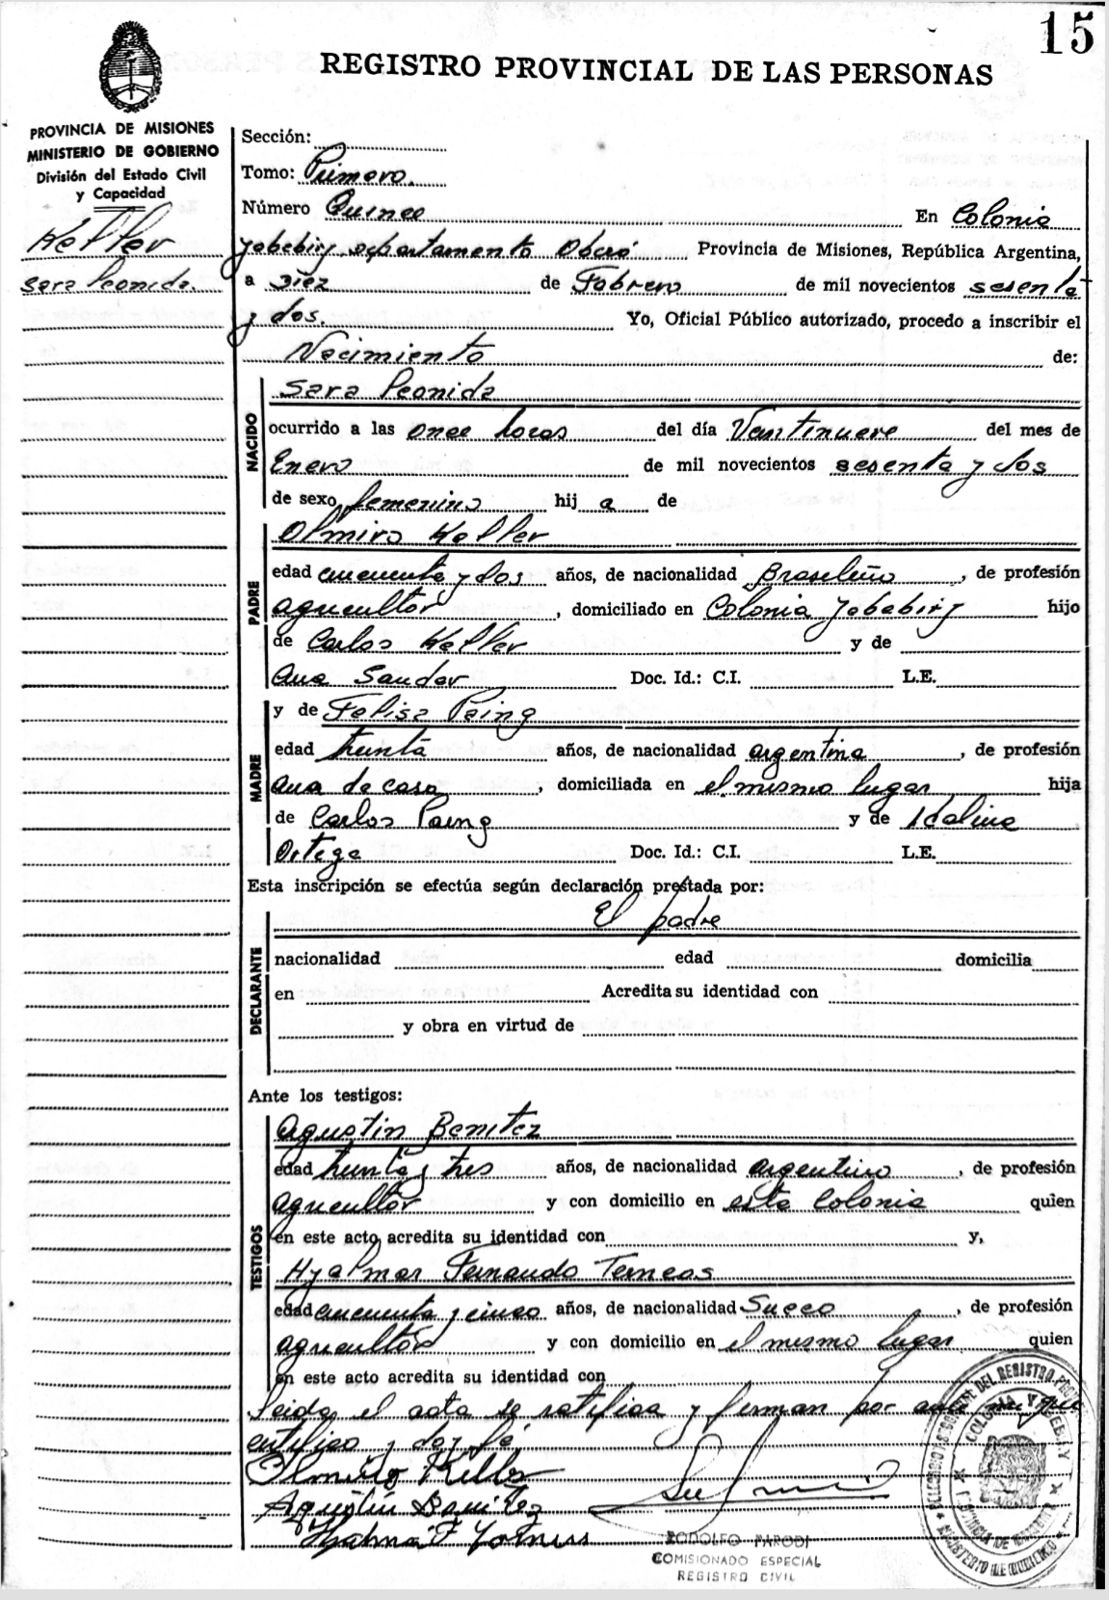 15
REGISTRO PROVINCIAL DE LAS PERSONAS
PROVINCIA DE MISIONES
MINISTERIO DE GOBIERNO
División del Estado Civil
y Capacidad
Keller
Sara Leonida.
Sección:
Tomo: Primero.
Número Quince En Colonia
Yabebiry departamento Oberá Provincia de Misiones, República Argentina,
a Diez de Febrero de mil novecientos sesenta
y dos. Yo, Oficial Público autorizado, procedo a inscribir el
Nacimiento de:
NACIDO
Sara Leonida
ocurrido a las once horas del día Veintinueve del mes de
Enero de mil novecientos sesenta y dos
de sexo femenino hij a de
PADRE
Olmiro Keller
edad cincuenta y dos años, de nacionalidad Brasileño, de profesión
agricultor, domiciliado en Colonia Yabebiry hijo
de Carlos Keller y de
Ana Sander Doc. Id.: C.I. L.E.
MADRE
y de Felisa Paing
edad treinta años, de nacionalidad argentina, de profesión
ama de casa, domiciliada en el mismo lugar hija
de Carlos Paing y de Idalina
Ortega Doc. Id.: C.I. L.E.
Esta inscripción se efectúa según declaración prestada por:
El padre
DECLARANTE
nacionalidad edad domicilia
en Acredita su identidad con
y obra en virtud de
Ante los testigos:
TESTIGOS
Agustin Benitez
edad treinta y tres años, de nacionalidad argentino, de profesión
agricultor y con domicilio en esta Colonia quien
en este acto acredita su identidad con y,
Hyalmar Fernando
edad cincuenta y cinco años, de nacionalidad Sueco, de profesión
agricultor y con domicilio en el mismo lugar quien
en este acto acredita su identidad con
Leida el acta se ratifica y firman por ante mi que
certifico y doy fé
Olmiro Keller
Agustin Benitez
RODOLFO PARODI
COMISIONADO ESPECIAL
REGISTRO CIVIL